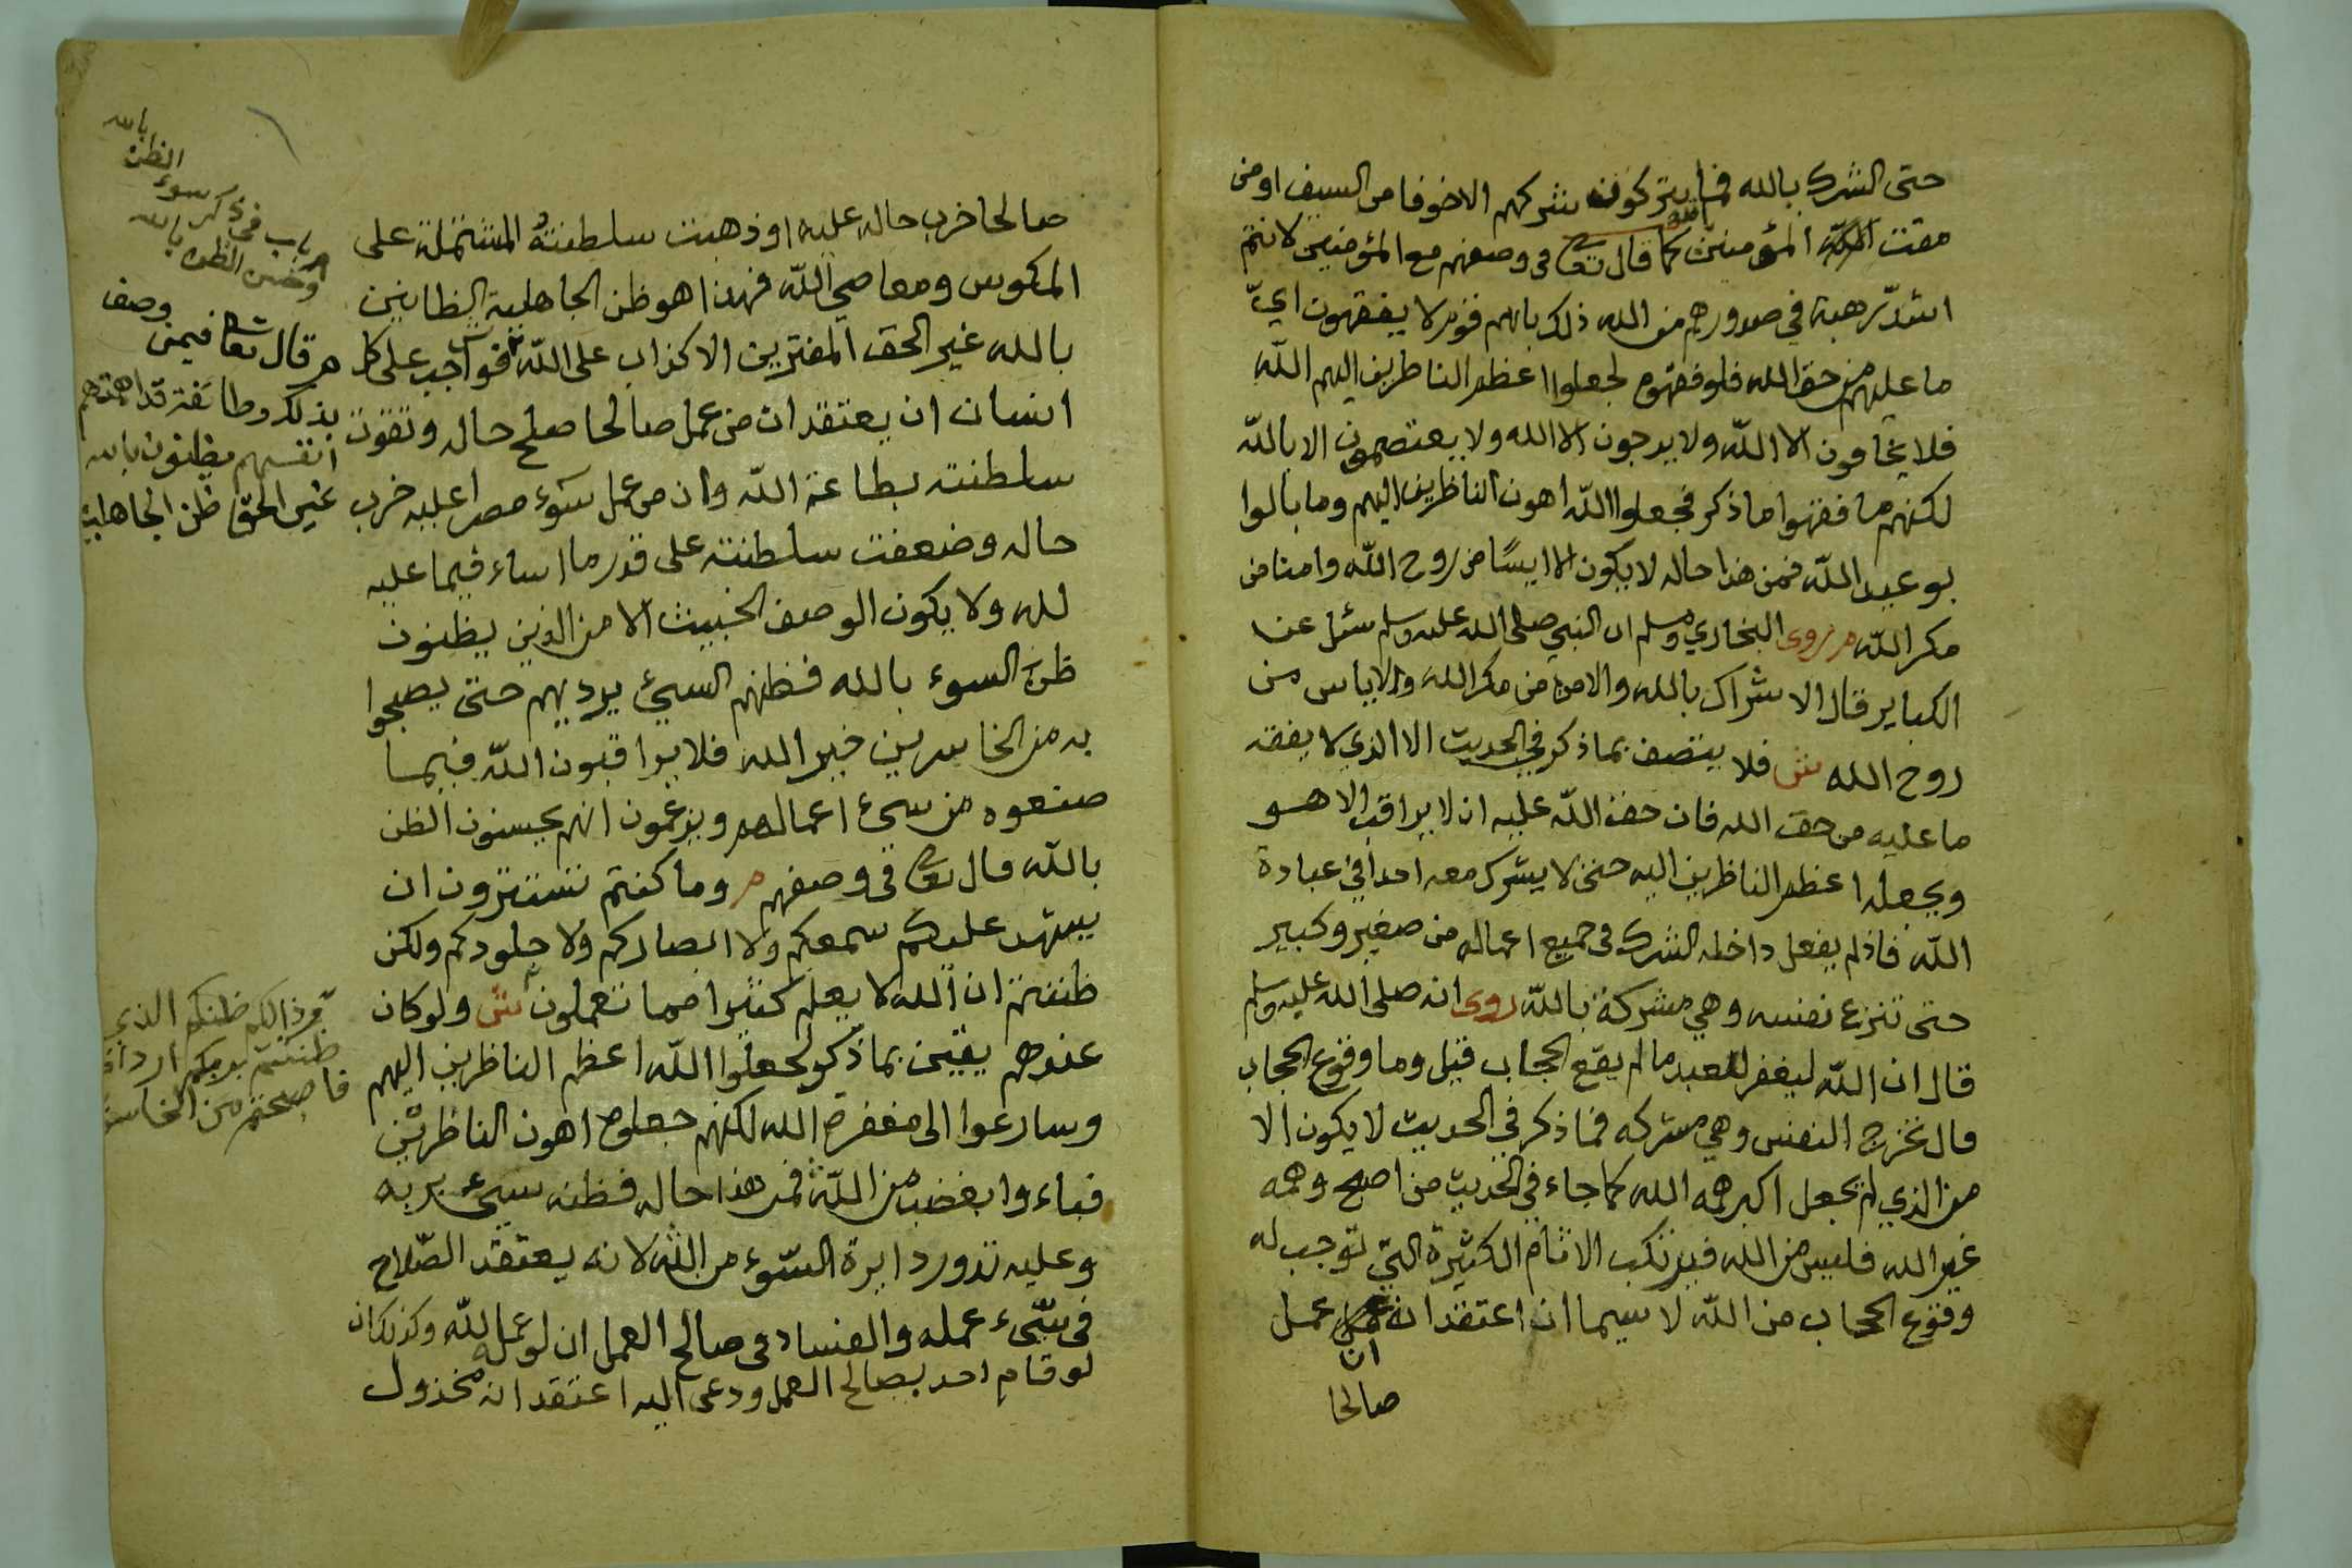 حتى الشرك بالله فما يتركون شركهم الا خوفا من السيف او من
مقت المؤمنين كما قال تعا في وصفهم مع المؤمنين لانتم
اشدّ رهبة في صدورهم من الله ذلك بانهم قوم لا يفقهون ايّ
ما عليهم من حق الله فلو فقهوه لجعلوا اعظم الناظرين اليهم الله
فلا يخافون الا الله ولا يرجون الا الله ولا يعتصمون الا بالله
لكنهم ما فقهوا ما ذكر فجعلوا الله اهون الناظرين اليهم وما بالوا
بوعيد الله فمن هذا حاله لا يكون الا ايسًا من روح الله وامنا من
مكر الله م روى البخاري ومسلم ان النبي صلى الله عليه وسلم سئل عن
الكباير قال الاشراك بالله والامن من مكر الله والاياس من
روح الله ش فلا يتصف بما ذكر في الحديث الا الذي لا يفقه
ما عليه من حق الله فان حق الله عليه ان لا يراقب الا هو
ويجعله اعظم الناظرين اليه حتى لا يشرك معه احدا في عبادة
الله فاذا لم يفعل داخله الشرك في جميع اعماله من صغير وكبير
حتى تنزع نفسه وهي مشركة بالله روى انه صلى الله عليه وسلم
قال ان الله ليغفر للعبد ما لم يقع الحجاب قيل وما وقوع الحجاب
قال تخرج النفس وهي مشركه فما ذكر في الحديث لا يكون الا
من الذي لم يجعل اكبر همه الله كما جاء في الحديث من اصبح وهمه
غير الله فليس من الله فيرتكب الاثام الكثيرة التي توجب له
وقوع الحجاب من الله لا سيما ان اعتقد انه عمل
ان
صالحا
صالحا خرب حاله عليه او ذهبت سلطنته المشتملة على
المكوس ومعاصي الله فهذا هو ظن الجاهلية الظانين
بالله غير الحق المفترين الاكذاب على الله فواجب على كل
انسان ان يعتقد ان من عمل صالحا صلح حاله وتقوت
سلطنته بطاعة الله وان من عمل سوء مصرا عليه خرب
حاله وضعفت سلطنته على قدر ما اساء فيما عليه
لله ولا يكون الوصف الخبيث الا من الذين يظنون
ظن السوء بالله فظنهم السيئ يرديهم حتى يصبحوا
به من الخاسرين خير الله فلا يراقبون الله فيما
صنعوه من سيئ اعمالهم ويزعمون انهم يحسنون الظن
بالله قال تعا في وصفهم م وما كنتم تستترون ان
يشهد عليكم سمعكم ولا ابصاركم ولا جلودكم ولكن
ظننتم ان الله لا يعلم كثيرا مما تعملون ش ولو كان
عندهم يقين بما ذكر لجعلوا الله اعظم الناظرين اليهم
وسارعوا الى مغفرة الله لكنهم جعلوه اهون الناظرين
فباءوا بغضب من الله فمن هذا حاله فظنه سيئ بربه
وعليه تدور دايرة السّوء من الله لانه يعتقد الصّلاح
في سّيء عمله والفساد في صالح العمل ان لو عمله لله وكذلك ان
لو قام احد بصالح العمل ودعى اليه اعتقد انه مخذول
باب في ذكر سوء الظن بالله
وحسن الظن بالله
م قال تعا فيمن وصف
بذلك وطائفة قد اهمتهم
انفسهم يظنون بالله
غير الحق ظن الجاهلية
وذالكم ظنكم الذي
ظننتم بربكم ارداكم
فاصبحتم من الخاسرين